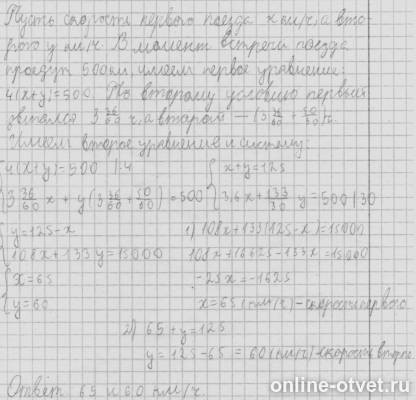 Пусть скорость первого поезда x км/ч, а вто-
рого y км/ч. В момент встречи поезда
проедут 500 км, имеем первое уравнение:
4(x+y)=500. По второму условию первый
двигался 3 36/60 ч, а второй — (3 36/60 + 50/60) ч.
Имеем второе уравнение и систему:
{ 4(x+y)=500 |:4 { x+y=125
{ 3 36/60 x + y(3 36/60 + 50/60) = 500 { 3,6x + 133/30 y = 500 |·30
{ y=125-x 1) 108x+133(125-x)=15000
{ 108x+133y=15000 108x+16625-133x=15000
{ x=65 -25x=-1625
{ y=60 x=65 (км/ч) - скорость первого
2) 65+y=125
y=125-65=60 (км/ч) - скорость второго
Ответ 65 и 60 км/ч.
online-otvet.ru